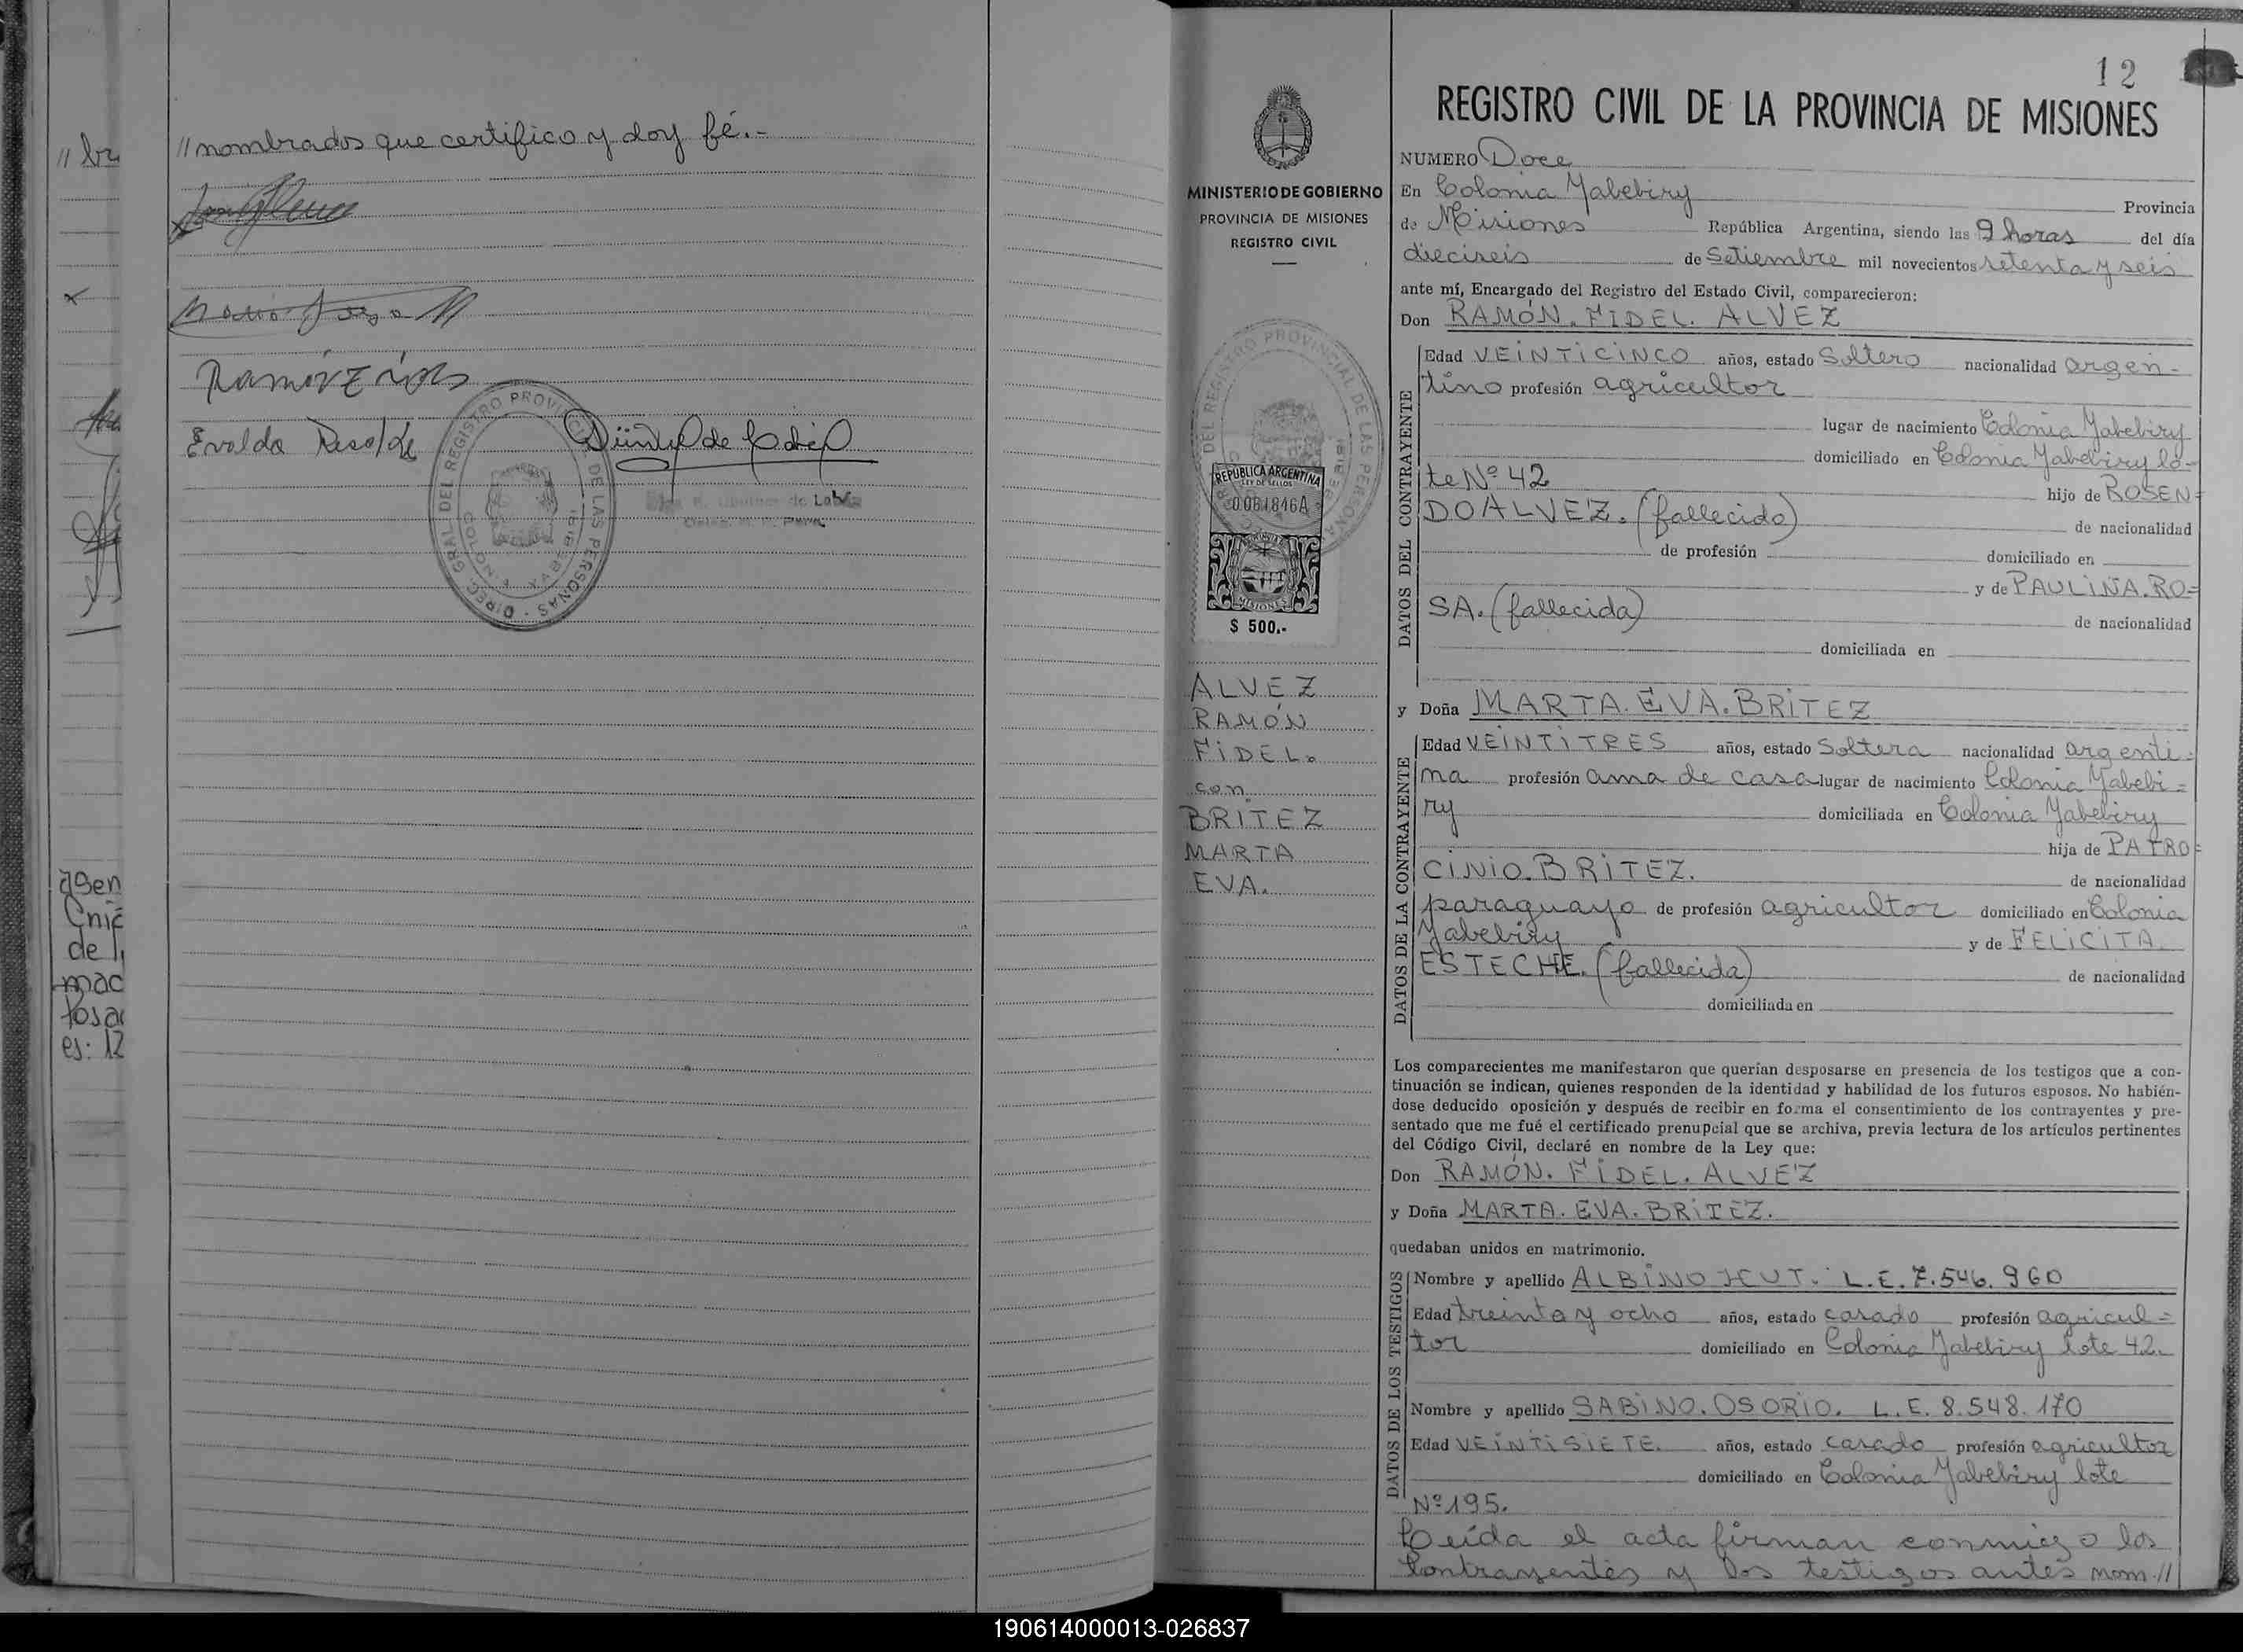 // nombrados que certifico y doy fé.-
Evaldo
// br
agen
de l
mac
es: 12
DIREC. GRAL DEL REGISTRO PROVINCIAL DE LAS PERSONAS
COLONIA YABEBIRI
12
MINISTERIO DE GOBIERNO
PROVINCIA DE MISIONES
REGISTRO CIVIL
REPUBLICA ARGENTINA
LEY DE SELLOS
MISIONES
$ 500.-
ALVEZ
RAMÓN
FIDEL.
con
BRITEZ
MARTA
EVA.
REGISTRO CIVIL DE LA PROVINCIA DE MISIONES
NUMERO Doce
En Colonia Yabebiry Provincia
de Misiones República Argentina, siendo las 9 horas del día
dieciseis de Setiembre mil novecientos setenta y seis
ante mí, Encargado del Registro del Estado Civil, comparecieron:
Don RAMÓN. FIDEL. ALVEZ
DATOS DEL CONTRAYENTE
Edad VEINTICINCO años, estado Soltero nacionalidad argen-
tino profesión agricultor
lugar de nacimiento Colonia Yabebiry
domiciliado en Colonia Yabebiry lo-
te Nº 42 hijo de ROSEN=
DO ALVEZ. (fallecido) de nacionalidad
de profesión domiciliado en
y de PAULINA. RO=
SA. (fallecida) de nacionalidad
domiciliada en
y Doña MARTA. EVA. BRITEZ
DATOS DE LA CONTRAYENTE
Edad VEINTITRES años, estado Soltera nacionalidad argenti=
na profesión ama de casa lugar de nacimiento Colonia Yabebi=
ry domiciliada en Colonia Yabebiry
hija de PATRO=
CINIO. BRITEZ. de nacionalidad
paraguayo de profesión agricultor domiciliado en Colonia
Yabebiry y de FELICITA
ESTECHE. (fallecida) de nacionalidad
domiciliada en
Los comparecientes me manifestaron que querían desposarse en presencia de los testigos que a con-
tinuación se indican, quienes responden de la identidad y habilidad de los futuros esposos. No habién-
dose deducido oposición y después de recibir en forma el consentimiento de los contrayentes y pre-
sentado que me fué el certificado prenupcial que se archiva, previa lectura de los artículos pertinentes
del Código Civil, declaré en nombre de la Ley que:
Don RAMÓN. FIDEL. ALVEZ
y Doña MARTA. EVA. BRITEZ.
quedaban unidos en matrimonio.
DATOS DE LOS TESTIGOS
Nombre y apellido ALBINO HUT. L.E. 7.546.960
Edad treinta y ocho años, estado casado profesión agricul=
tor domiciliado en Colonia Yabebiry lote 42.
Nombre y apellido SABINO. OSORIO. L.E. 8.548.170
Edad VEINTISIETE. años, estado casado profesión agricultor
domiciliado en Colonia Yabebiry lote
Nº 195.
Leída el acta firman conmigo los
Contrayentes y los testigos antes nom//
190614000013-026837